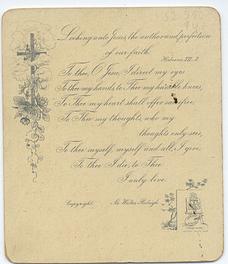 Looking unto Jesus, the author and perfection
of our faith.
Hebrews XII. 2
To Thee, O Jesu, I direct my eyes
To Thee my hands, to Thee my humble knees,
To Thee my heart shall offer sacrifice,
To Thee my thoughts, who my
thoughts only sees,
To Thee myself, myself and all, I give,
To Thee I die, to Thee
I only live.
Copyright. Sir Walter Raleigh.